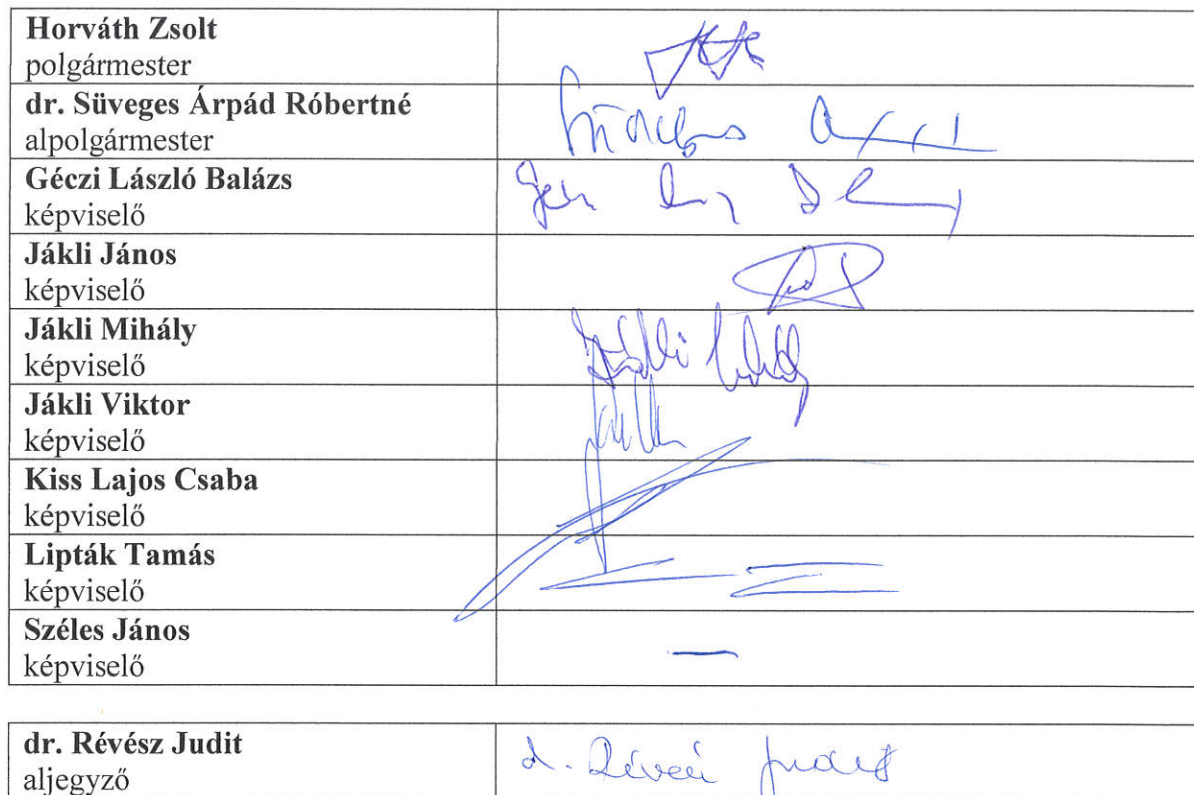 Horváth Zsolt
polgármester
dr. Süveges Árpád Róbertné
alpolgármester
Géczi László Balázs
képviselő
Jákli János
képviselő
Jákli Mihály
képviselő
Jákli Viktor
képviselő
Kiss Lajos Csaba
képviselő
Lipták Tamás
képviselő
Széles János
képviselő
—
dr. Révész Judit
aljegyző
d. Révész Judit